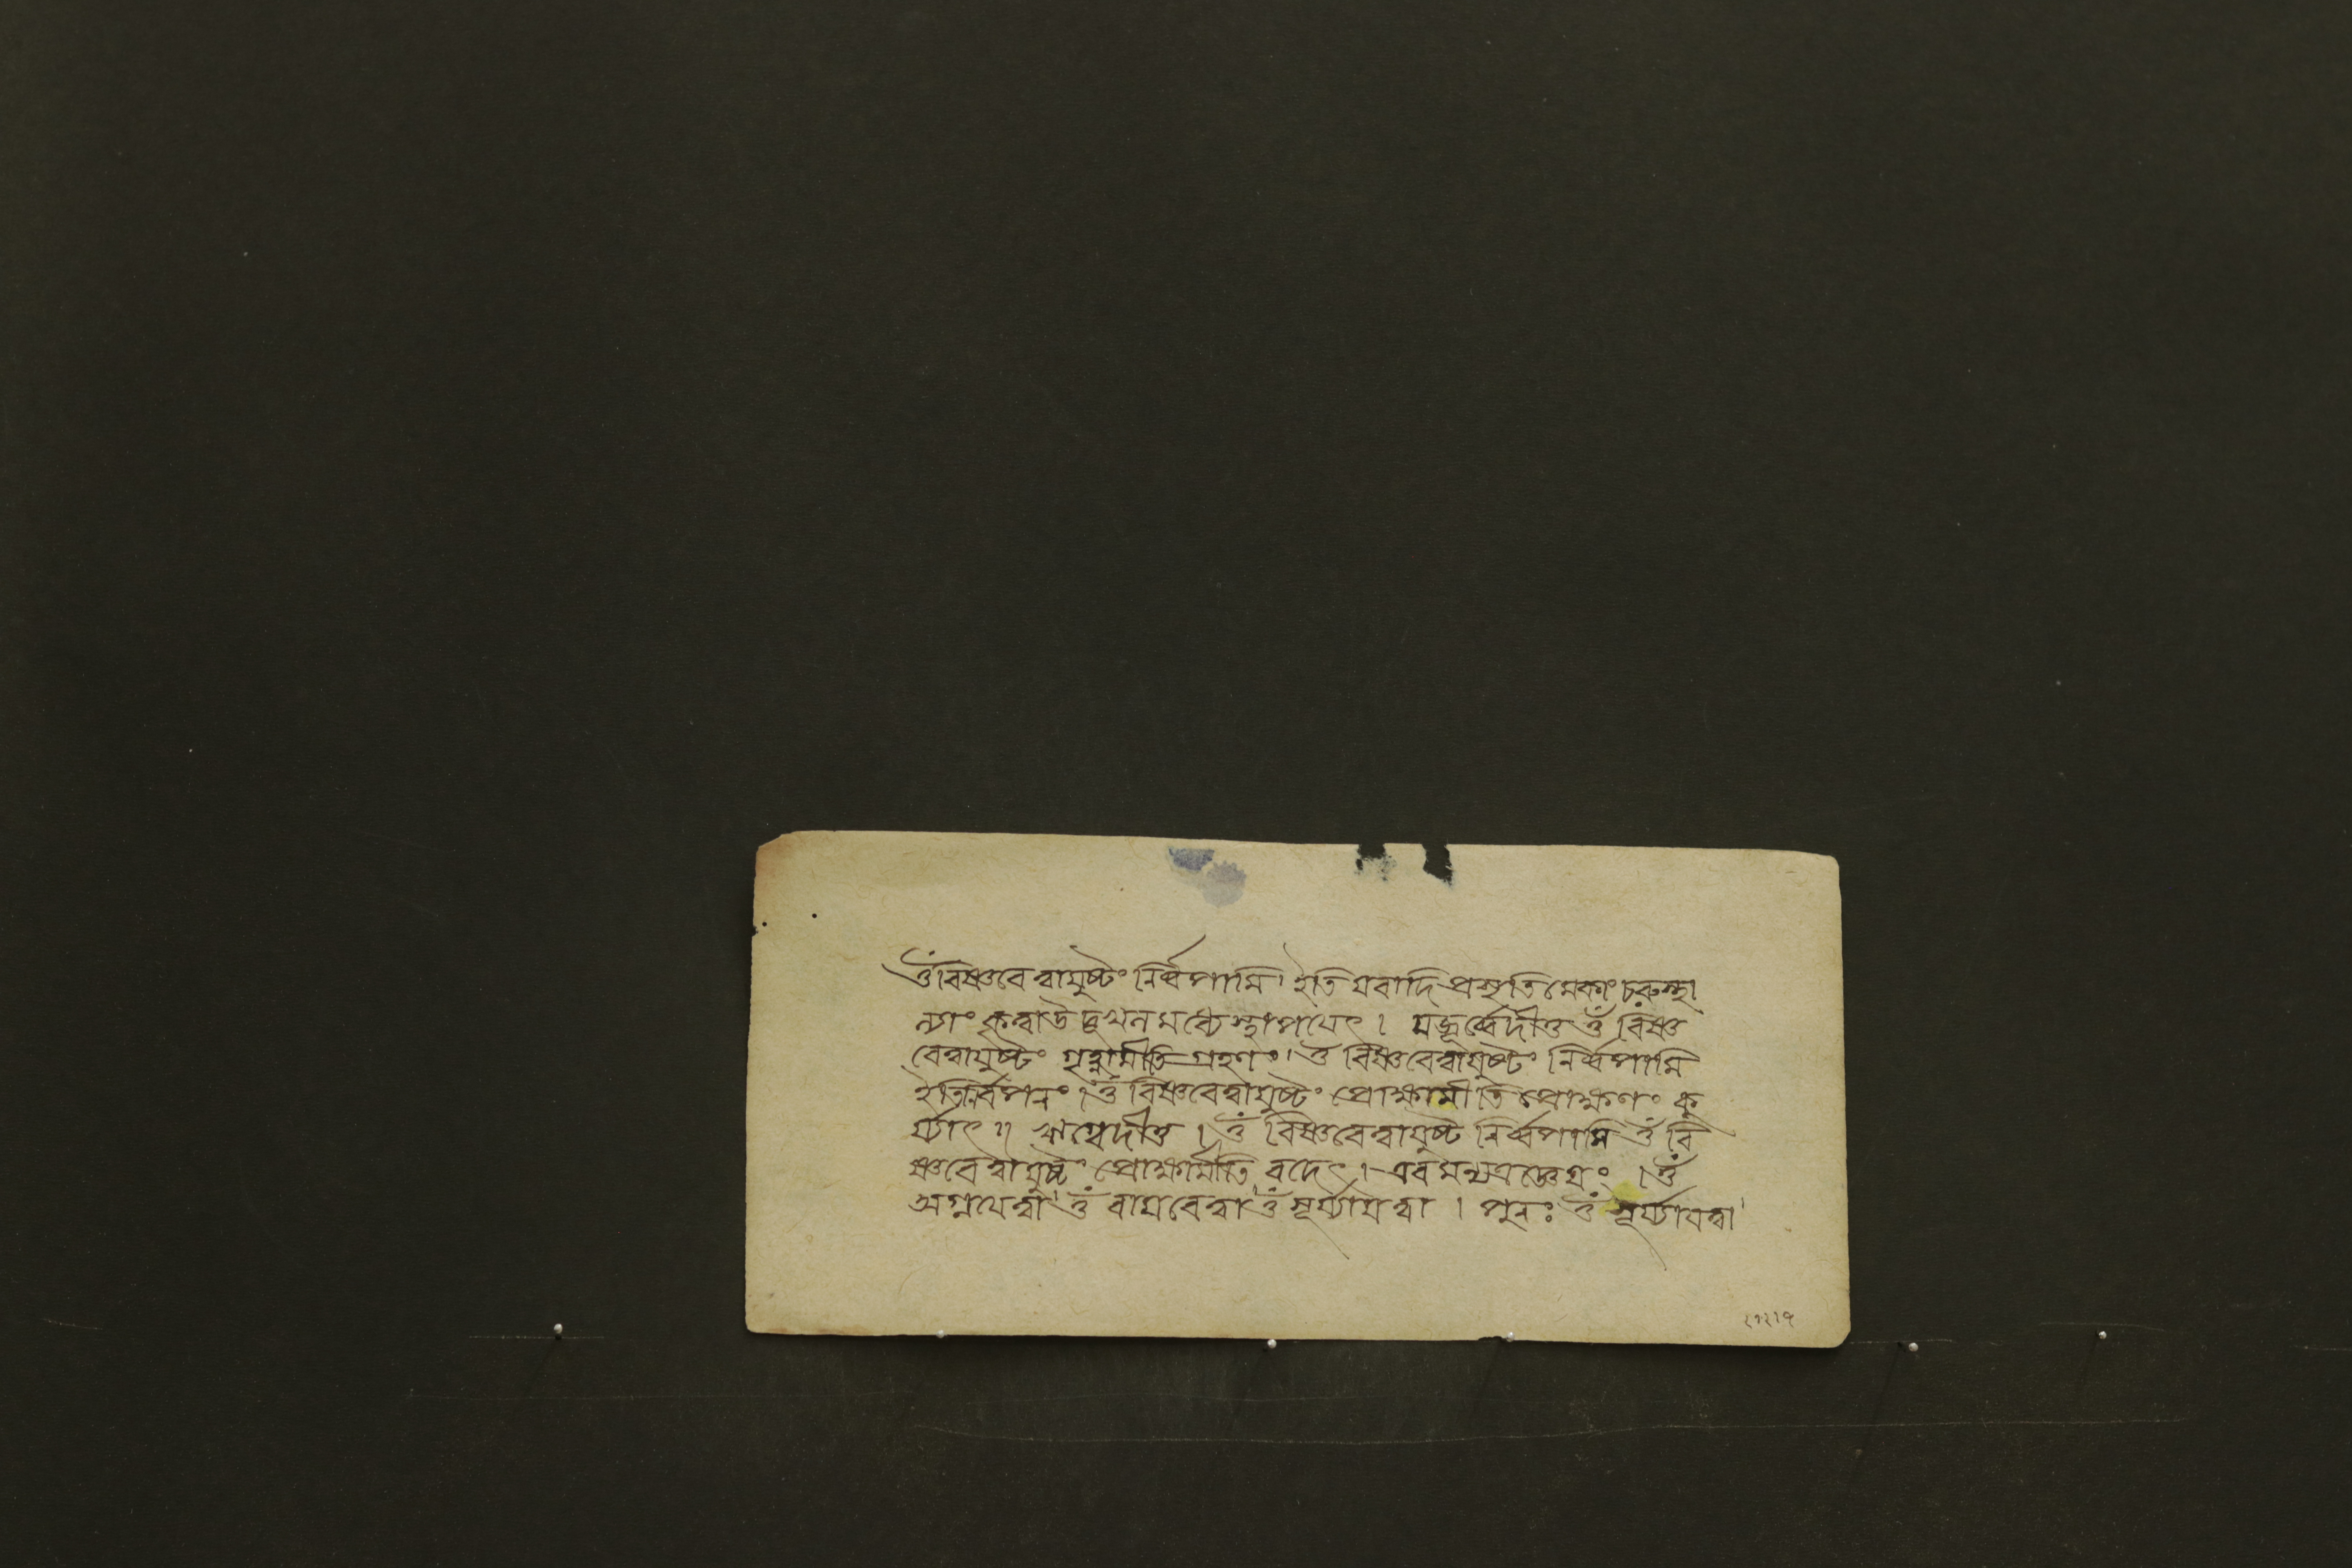 ওঁ বিষ্ণবেত্বাযুষ্টং নির্ব্বপামি। ইতি যবাদি প্রসৃতি মেকাং চরুস্থা
ল্যাং কৃত্বা উদুখল মধ্যে স্থাপয়েৎ। যজুর্ব্বেদীতু ওঁ বিষ্ণ
বেত্বাযুষ্টং গৃহ্ণামীতি গ্রহণং। ওঁ বিষ্ণবেত্বাযুষ্টং নির্ব্বপামি
ইতি নির্বপনং। ওঁ বিষ্ণবেত্বাযুষ্টং প্রোক্ষামীতি প্রোক্ষণং কু
র্য্যাৎ॥ ঋগ্বেদীতু। ওঁ বিষ্ণবেত্বাযুষ্টং নির্ব্বপামি ওঁ বি
ষ্ণবেত্বাযুষ্টং প্রোক্ষামীতি বদেৎ। এবমন্যত্র জ্ঞেয়ং। ওঁ
অগ্নয়েত্বা। ওঁ বায়বেত্বা। ওঁ সূর্য্যায়ত্বা। পুনঃ ওঁ সূর্য্যায়ত্বা।